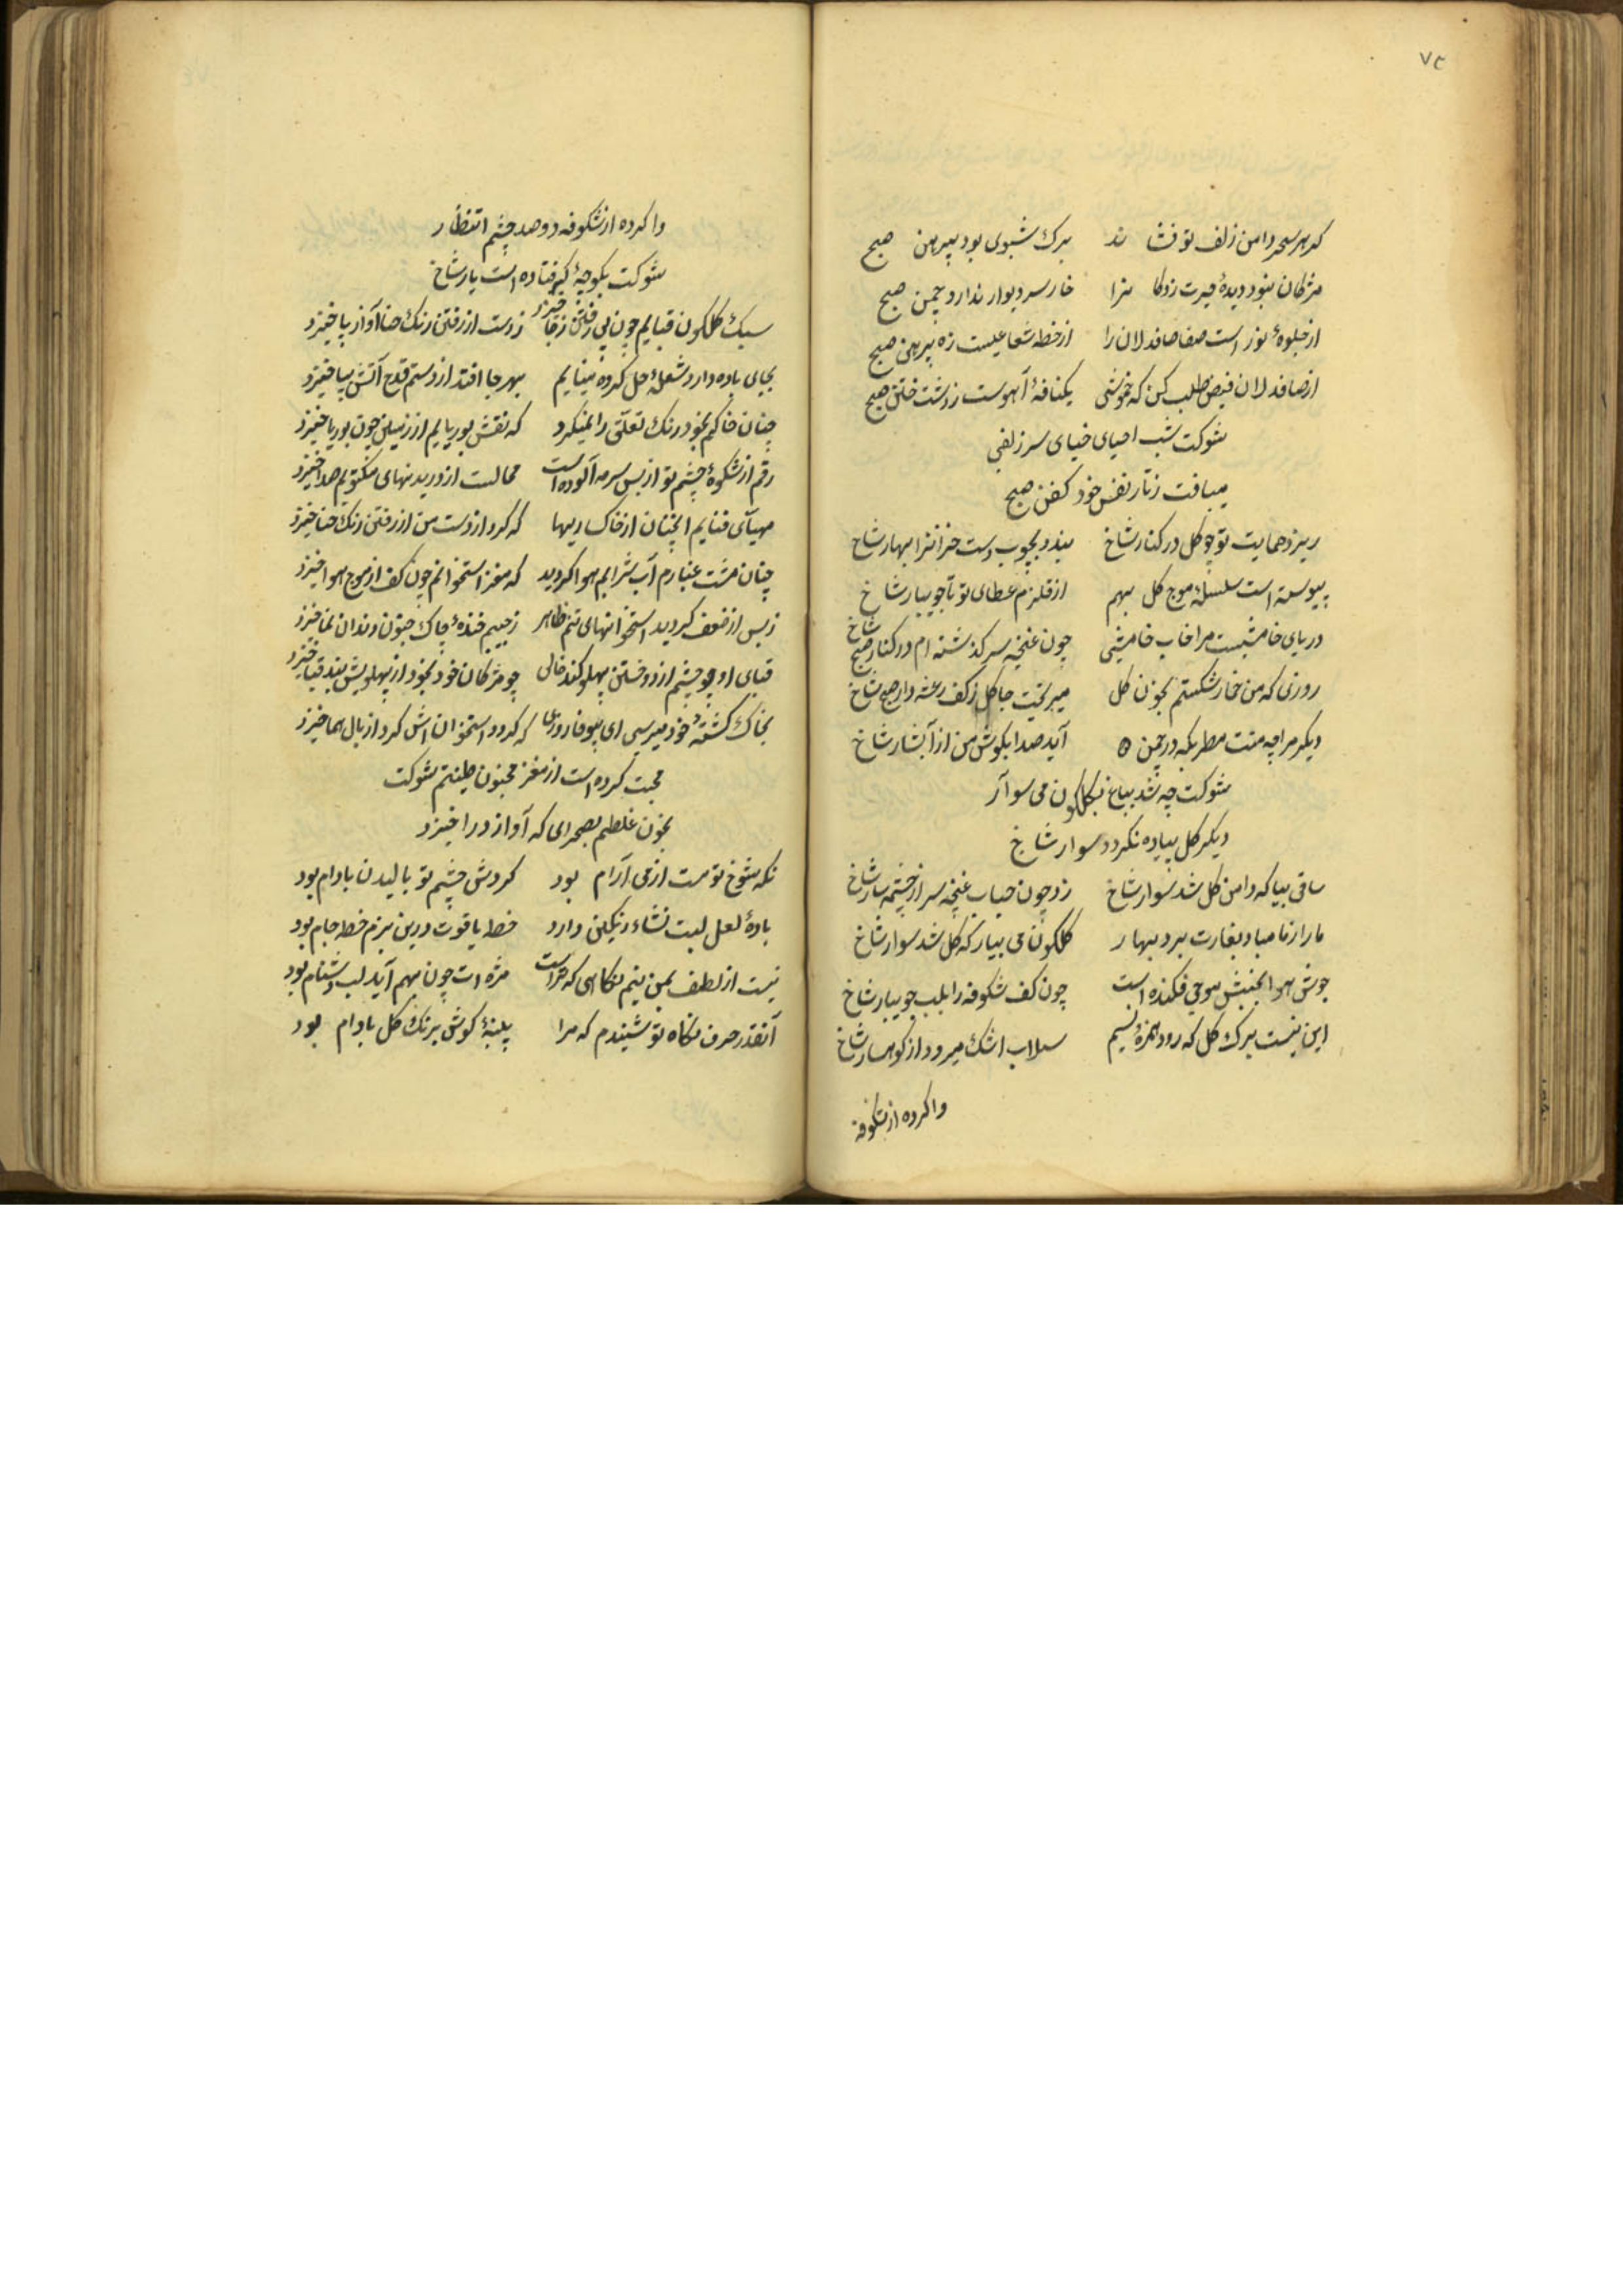 ۷۳
که هر سحر دامن زلف تو فشا ند برک شبوی بود پیرهن صبح
مژکان نبود دیدهٔ حیرت زدکا نرا خار سر دیوار ندارد چمن صبح
از جلوهٔ نور است صفا صافدلان را از خط شعاعیست زه پیرهن صبح
از صافدلان فیض طلب کن که خموشی یکنافهٔ آهوست ز دشت ختن صبح
شوکت شب احیای خیای سر زلفی
میبافت ز تار نفس خود کفن صبح
ریزد حمایت تو چو کل در کنار شاخ بندد بچوب دست خزانرا بهار شاخ
پیوسته است سلسلهٔ موج کل بهم از قلزم عطای تو تا جویبار شاخ
دریای خامشیست مرا خاب خامشی چون غنچه سر کذشته ام در کنار شاخ
روزی که من خمار شکستم بخون کل میریخت جا کل ز کف رعشه دار شاخ
دیکر مرا چه منت مطرب که در چمن آید صدا بکوش من از آبشار شاخ
شوکت چه شد بباغ بکلکون می سوار
دیکر کل پیاده نکردد سوار شاخ
ساقی بیا که دامن کل شد سوار شاخ زد چون حباب غنچه سر از چشمه سار شاخ
ما را ز ما مباد بغارت برد بهار کلکون می بیار که کل شد سوار شاخ
جوش هوا بجنبش موجی فکنده است چون کف شکوفه را بلب جویبار شاخ
این نیست برک کل که رود همره نسیم سیلاب اشک میرود از کوهسار شاخ
واکرده از شکوفه
واکرده از شکوفه دو صد چشم انتظار
شوکت بکوچهٔ که فتاده است یار شاخ
سبک کلکون قبایم چون پی رفتن ز جا خیزد ز دست از رفتن رنک حنا آواز پا خیزد
بجای باده دارد شعلهٔ حل کرده مینایم بهر جا افتد از دستم قدح آتش بپا خیزد
چنان خاکم بخود رنک تعلق را نمیکیرد که نقش بوریایم از زمین چون بوریا خیزد
رقم از شکوهٔ چشم تو از بس سرمه آلود است محالست از دریدنهای مکتوبم صدا خیزد
مهیای فنایم آنچنان از خاکساریها که کرد از دست من از رفتن رنک حنا خیزد
چنان مشت غبارم آب شد ابم هوا کردید که مغز استخوانم چون کف از موج هوا خیزد
ز بس از ضعف کردید استخوانهای تنم ظاهر ز جیبم خندهٔ چاک جنون دندان نما خیزد
قبای او چو چشم از دوختن پهلو کند خالی چو مژکان خود بخود از پهلویش بند قبا خیزد
بخاک کشتهٔ خود میرسی ای بیوفا روزی که کرد استخوانش کرد از بال هما خیزد
محبت کرده است از مغز مجنون طینتم شوکت
بخون غلطم بصحرای که آواز درا خیزد
نکه شوخ تو مست از می آرام بود کردش چشم تو بالیدن بادام بود
بادهٔ لعل لبت نشاء رنکین دارد خط یاقوت درین بزم خط جام بود
نیست از لطف بمن نیم نکاهی که تراست مژه ات چون بهم آید لب دشنام بود
آنقدر حرف نکاه تو شنیدم که مرا پنبهٔ کوش برنک کل بادام بود